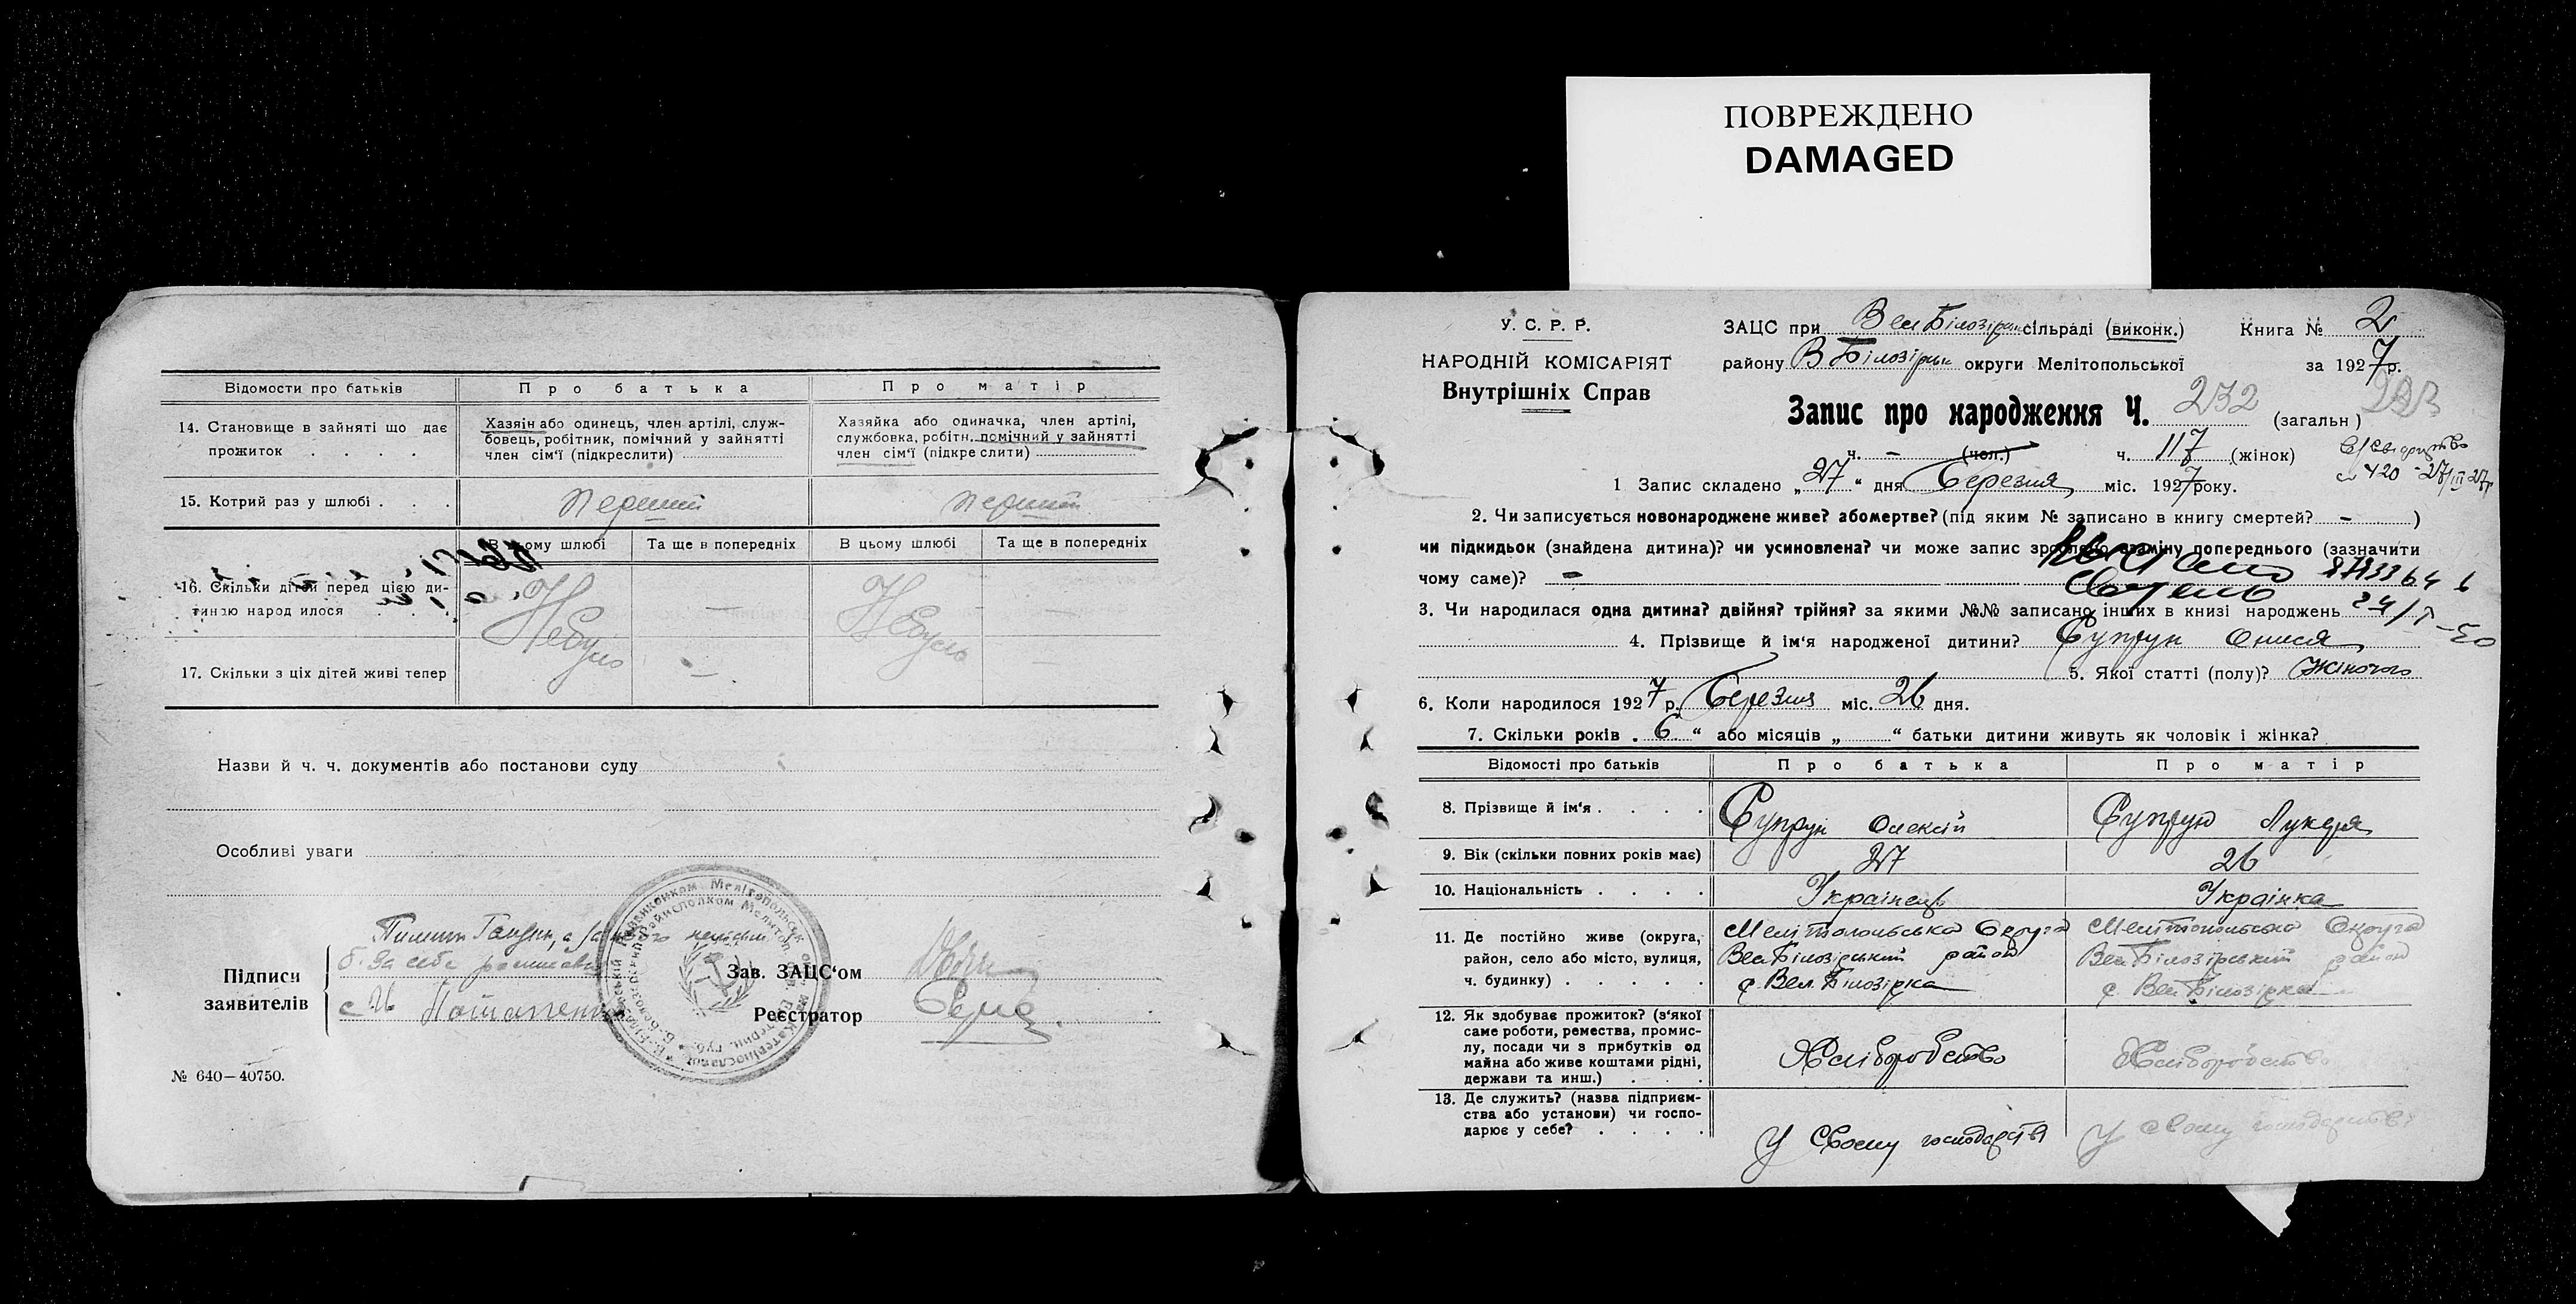 ПОВРЕЖДЕНО
DAMAGED
Відомости про батьків
Про батька
Про матір
14. Становище в зайняті що дає прожиток . . . .
Хазяін або одинець, член артілі, служ-
бовець, робітник, помічний у зайнятті
член сім'ї (підкреслити)
Хазяйка або одиначка, член артілі,
службовка, робітн. помічний у зайнятті
член сім'ї (підкреслити)
15. Котрий раз у шлюбі . . .
перший
перший
В цьому шлюбі
Та ще в попередніх
В цьому шлюбі
Та ще в попередніх
16. Скільки дітей перед цією ди-
тиною народилося
Небуло
—
Небуло
—
17. Скільки з ціх дітей живі тепер
—
—
Назви й ч. ч. документів або постанови суду
Особливі уваги
Підписи
заявителів
Зав. ЗАЦС'ом
Реєстратор
№ 640—40750.
У. С. Р. Р.
НАРОДНІЙ КОМІСАРІЯТ
Внутрішніх Справ
ЗАЦС при Вел Білозірск сільраді (виконк.) Книга № 2
району В Білозірськ округи Мелітопольської за 1927 р.
Запис про народження Ч. 232 (загальн)
ч. — (чол.) ч. 117 (жінок)
№ 420 - 27/III 27р
1 Запис складено „27“ дня Березня міс. 1927 року.
2. Чи записується новонароджене живе? або мертве? (під яким № записано в книгу смертей? — )
чи підкидьок (знайдена дитина)? чи усиновлена? чи може запис зроблено взаміну попереднього (зазначити
чому саме)? —
3. Чи народилася одна дитина? двійня? трійня? за якими №№ записано інших в книзі народжень
4. Прізвище й ім'я народженої дитини? Супрун Онися
5. Якої статті (полу)? Жіночого
6. Коли народилося 1927 р. Березня міс. 26 дня.
7. Скільки років „6“ або місяців „ “ батьки дитини живуть як чоловік і жінка?
Відомості про батьків
Про батька
Про матір
8. Прізвище й ім'я . . . .
Супрун Олексій
Супрун Лукеря
9. Вік (скільки повних років має)
27
26
10. Національність . . . .
Українець
Українка
11. Де постійно живе (округа,
район, село або місто, вулиця,
ч. будинку) . . . . .
Мелітопольська Округа
Вел Білозірський район
с. Вел. Білозірка
Мелітопольська Округа
Вел Білозірський район
с. Вел Білозірка
12. Як здобуває прожиток? (з'якої
саме роботи, ремества, промис-
лу, посади чи з прибутків од
майна або живе коштами рідні,
держави та инш.) . . .
Хліборобство
Хліборобство
13. Де служить? (назва підприєм-
ства або установи) чи госпо-
дарює у себе? . . . .
У своему господарстві
У своему господарстві